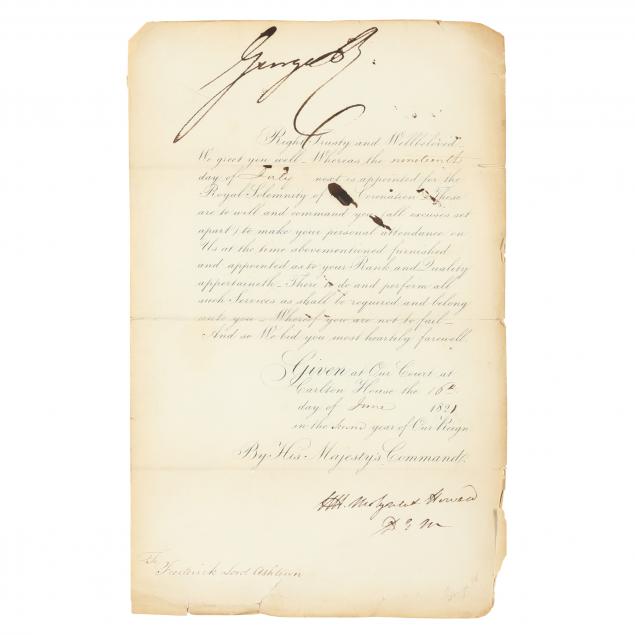 George R.
Right Trusty and Wellbeloved,
We greet you well – Whereas the nineteenth
day of July next is appointed for the
Royal Solemnity of Coronation – These
are to will and command you (all excuses set
apart) to make your personal attendance on
Us at the time abovementioned furnished
and appointed as to your Rank and Quality
appertaineth – There to do and perform all
such Services as shall be required and belong
unto you – Whereof you are not to fail –
And so We bid you most heartily farewell.
Given at Our Court at
Carlton House the 16th
day of June 1821
in the second year of Our Reign
By His Majesty's Command.
Howard
D E M
To
Frederick Lord Ashtown